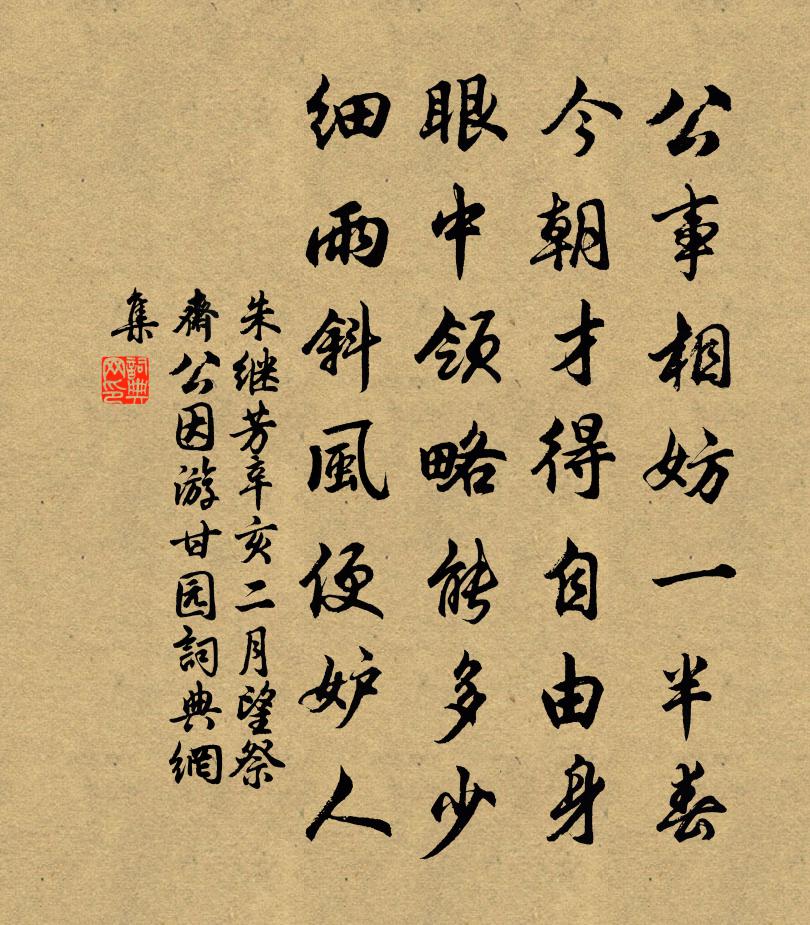 公事相妨一半春
今朝才得自由身
眼中领略能多少
细雨斜風便妒人
朱继芳辛亥二月望祭
齋公因游甘园詞典網
集
詞典网印